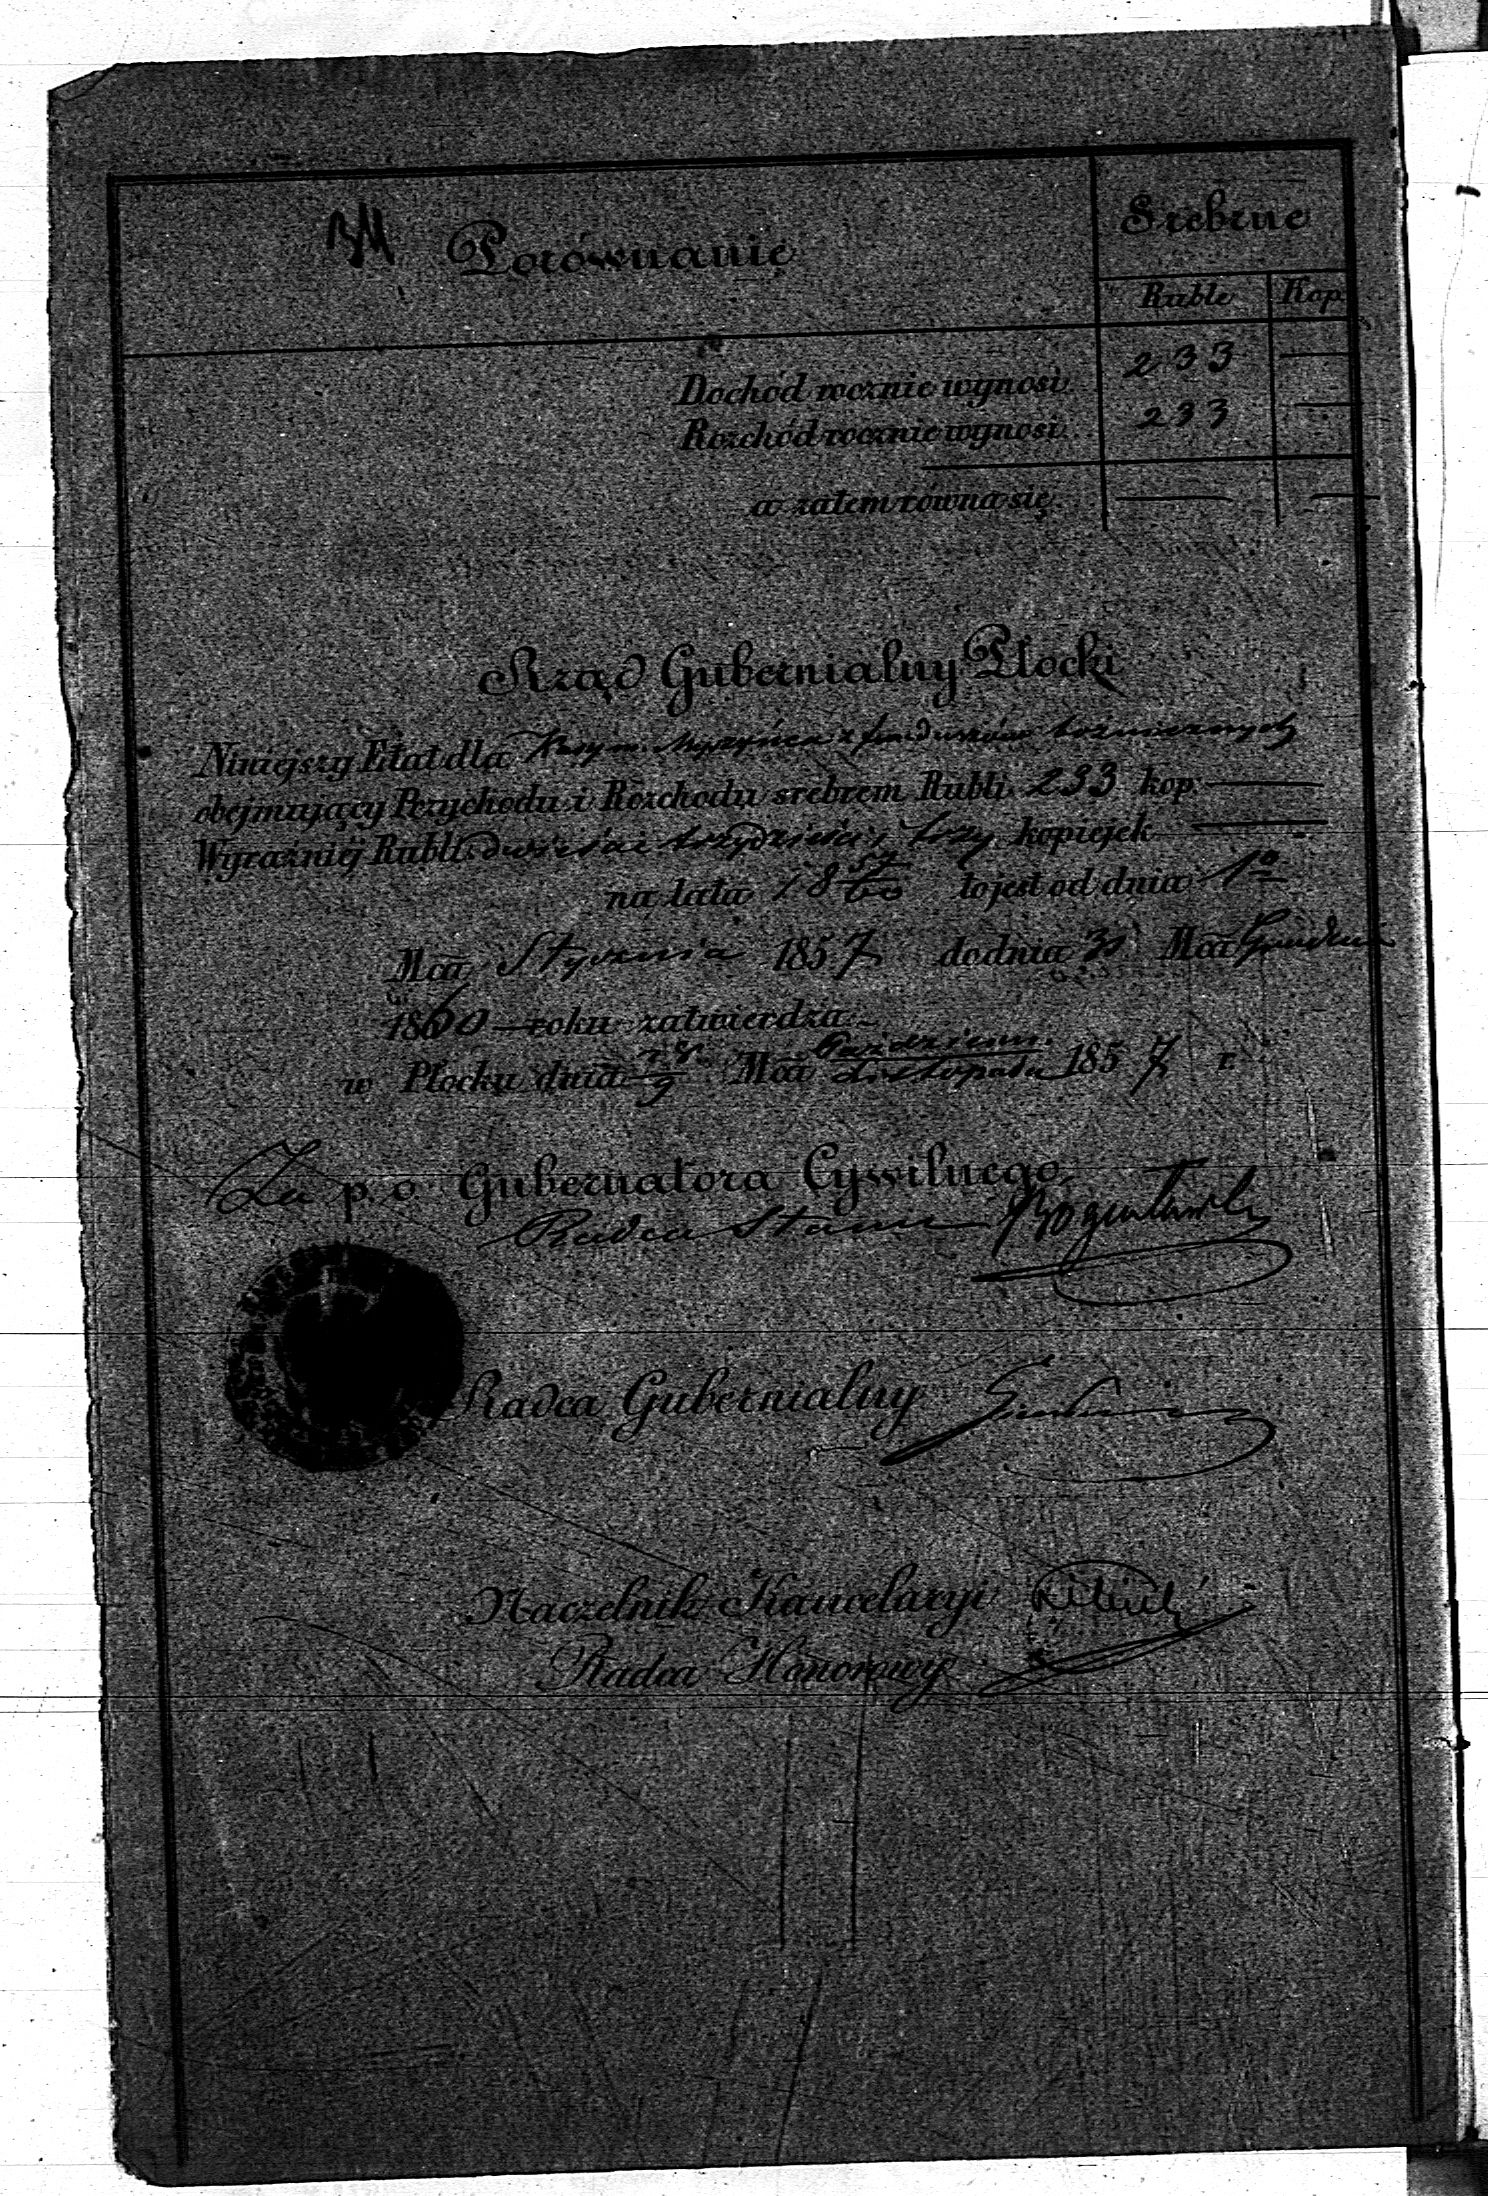 Porównanie
Srebrne
Ruble Kop
Dochód rocznie wynosi 233 —
Rozchód rocznie wynosi 233 —
a zatem równa się — —
Rząd Gubernialny Płocki
Niniejszy Etat dla Myszyńca z funduszów bóżniczych
obejmujący Przychodu i Rozchodu srebrem Rubli 233 kop. —
Wyraźniéj Rubli dwieście trzydzieści trzy kopiejek —
na lata 18 57/60 to jest od dnia 1o
Mca Stycznia 1857 do dnia Mca Grudnia
1860 — roku zatwierdza
w Płocku dnia 28/9 Mca Październ./Listopada 1857 r.
Za p. o. Gubernatora Cywilnego,
Radca Stanu
Radca Gubernialny
Naczelnik Kancelaryi
Radca Honorowy